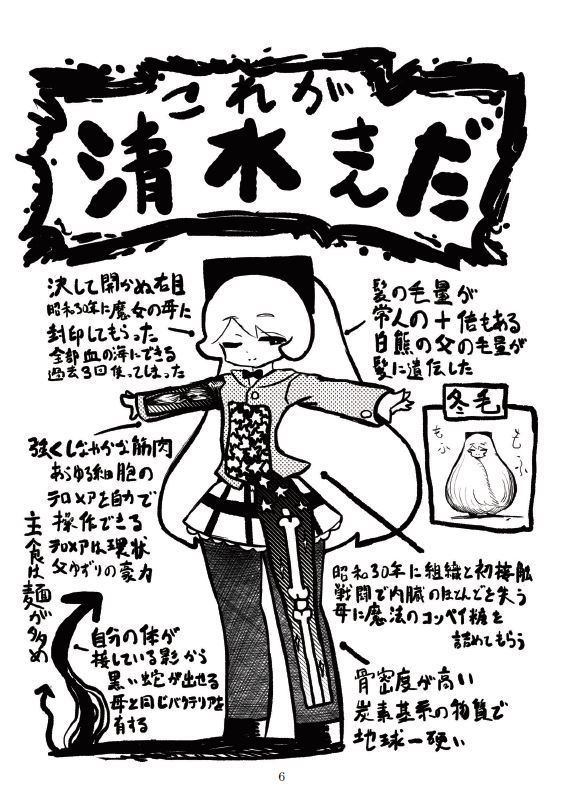 これが
清水さんだ
決して開かぬ右目
昭和30年に魔女の母に
封印してもらった
全部血の海にできる
過去3回使ってしまった
髪の毛量が
常人の十倍もある
白熊の父の毛量が
髪に遺伝した
冬毛
もふ
もふ
強くしなやかな筋肉
あらゆる細胞の
テロメアを自力で
操作できる
テロメアは環状
父ゆずりの豪力
主食は麺が多め
昭和30年に組織と初接触
戦闘で内臓のほとんどを失う
母に魔法のコンペイ糖を
詰めてもらう
自分の体が
接している影から
黒い蛇が出せる
母と同じバクテリアを
有する
骨密度が高い
炭素基系の物質で
地球一硬い
6